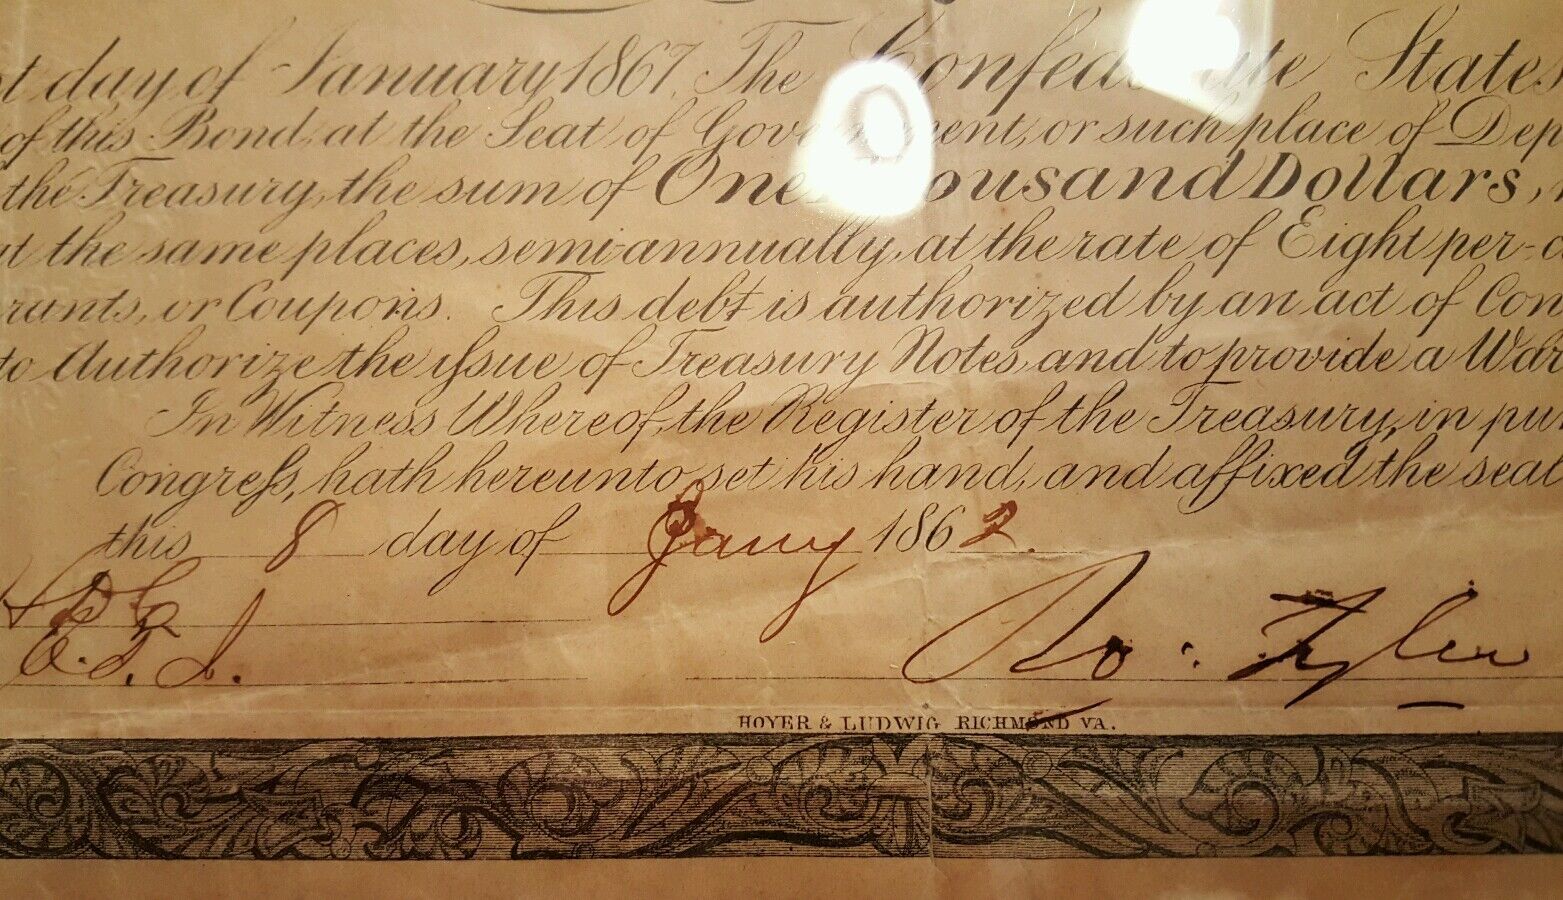 t day of January 1867, The Confederate States
of this Bond, at the Seat of Government, or such place of Dep
the Treasury, the sum of One Thousand Dollars,
at the same places, semi-annually, at the rate of Eight per-c
rants, or Coupons. This debt is authorized by an act of Con
to Authorize the issue of Treasury Notes, and to provide a War
In Witness Whereof, the Register of the Treasury, in pur
Congress, hath hereunto set his hand, and affixed the seal
this 8 day of Jany 1862.
E.T.J.
Ro: Tyler
HOYER & LUDWIG, RICHMOND VA.